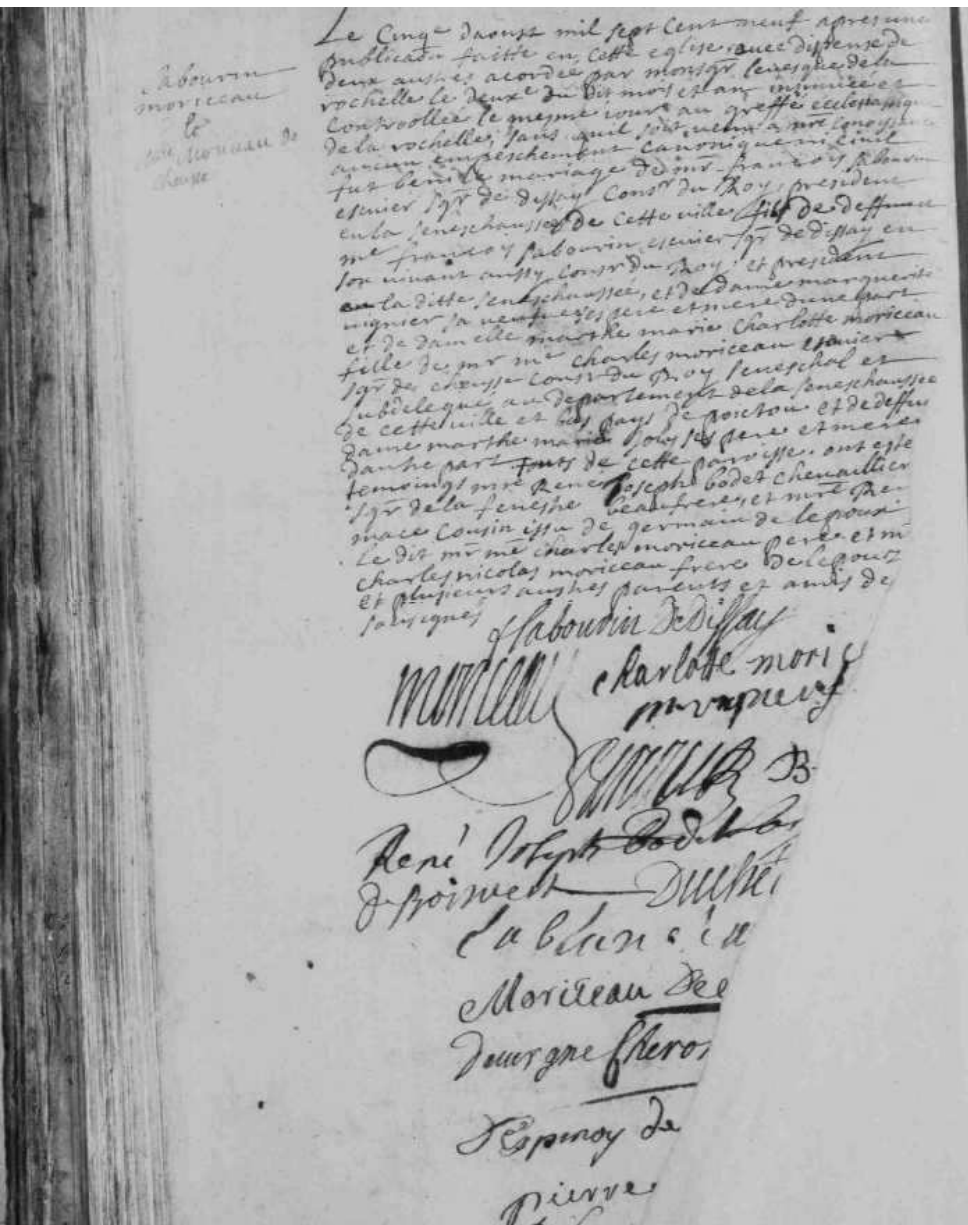 Sabourin
moriceau
Le Cinqe daoust mil sept Cent neuf apres une
publicaõn faitte en cette eglise avec dispense de
deux austres acordée par monsgr levesque de la
rochelle le deuxe du dit mois et an insinuée et
Controollée le mesme iour au greffe ecclesiastique
de la rochelle, sans quil soit venu a nre conoyssance
aucun empeschement canonique ni civil
fut beni le mariage de mr françois Sabourin
escuier sgr de dissay Consr du Roy, president
en la seneschaussée de cette ville fils de deffunct
me françois Sabourin escuier sgr de dissay en
son vivant aussy Consr du Roy, et president
en la ditte seneschaussee, et de dame marguerite
vignier sa veufve ses pere et mere dune part
et de damelle marthe marie Charlotte moriceau
fille de mr me Charles moriceau escuier
sgr de cheusse Consr du Roy seneschal et
subdelegué au departement de la seneschaussée
de cette ville et bas pays de poictou et de deffun
dame marthe marie ses pere et mere
dautre part touts de cette paroisse. ont esté
temoings mre René Joseph bodet chevallier
sgr de la fenestre beaufrere, et mre Re
mace Cousin issu de germain de lepoux
Le dit mr me Charles moriceau pere et m
Charles nicolas moriceau frere de lepouz
et plusieurs austres parents et amis de
sousignés
f Sabourin De Dissay
moriceau
charlotte mori
B
René Joseph Bodet
Duche
Moriceau
Dauvergne
D'Espinoy de
pierre